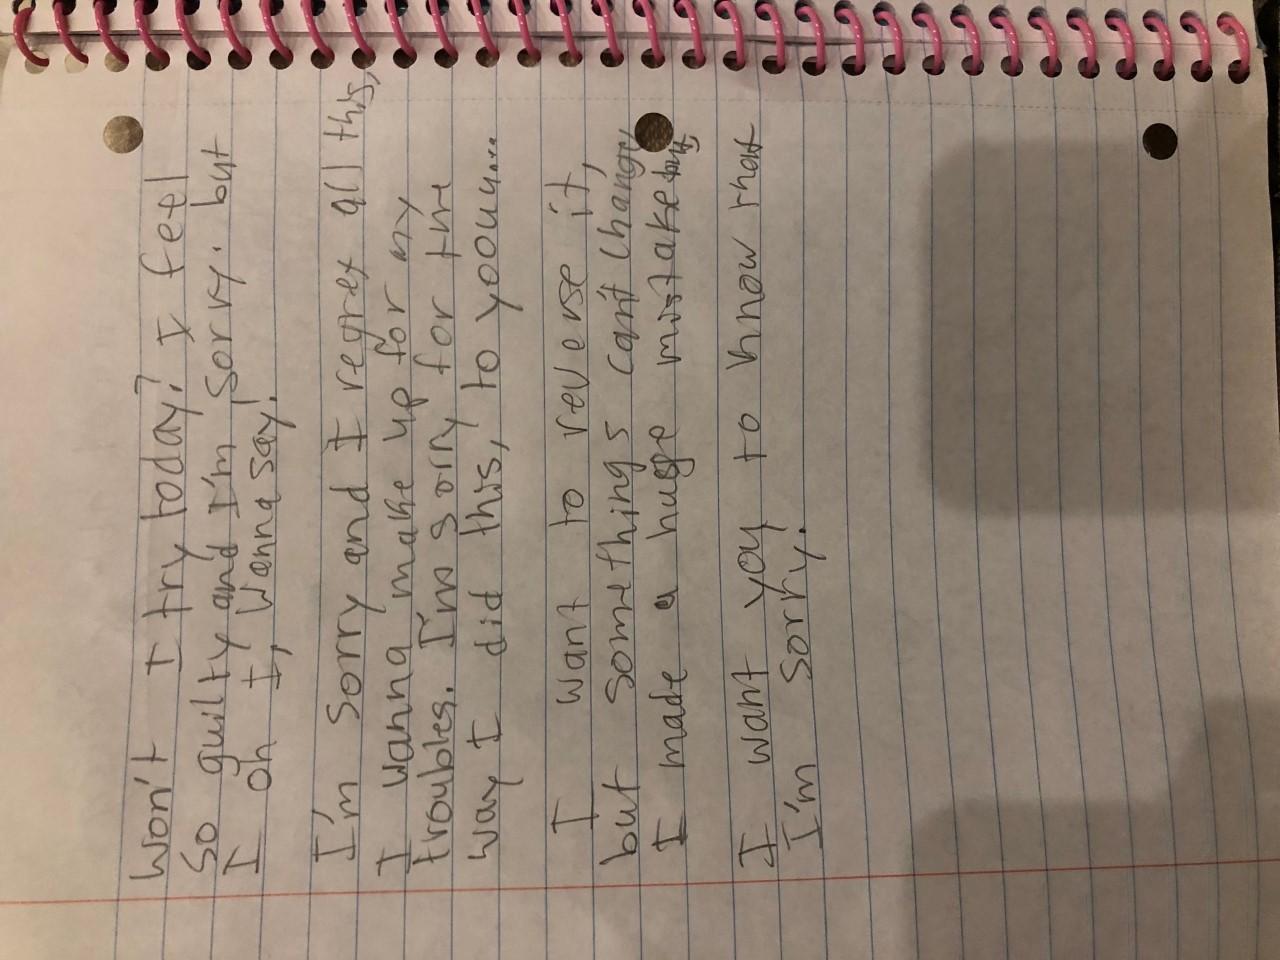 Won't I try today? I feel
So guilty and I'm sorry. but
I oh I, wanna say!
I'm sorry and I regret all this,
I wanna make up for my
troubles. I'm sorry for the
way I did this, to yoouu...
I want to reverse it,
but somethings can't change,
I made a huge mistake but,
I want you to know that
I'm sorry.